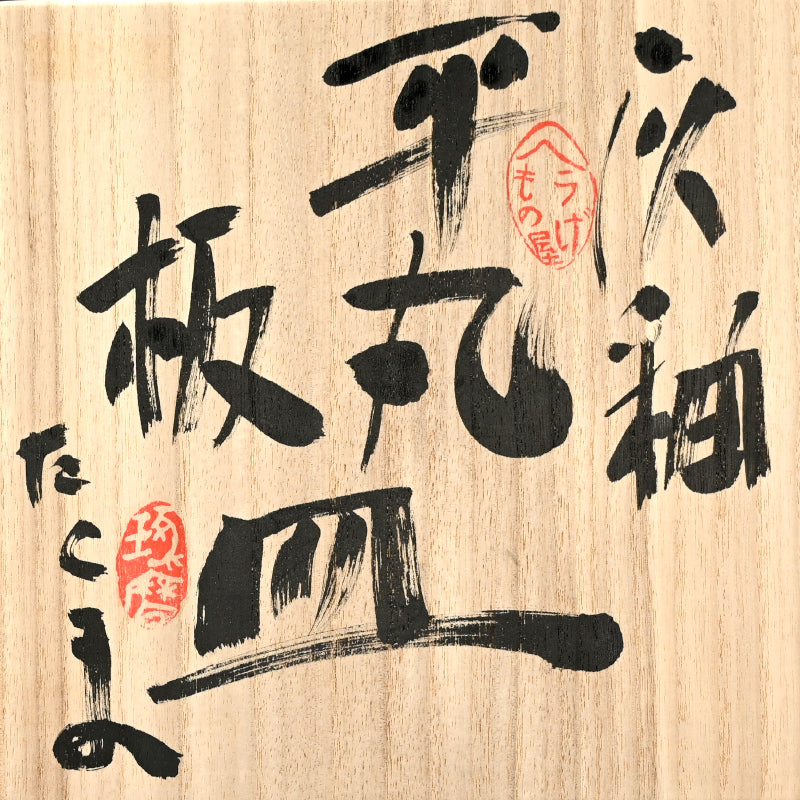 灰釉
へうげもの屋
平丸皿
板
たくま
琢磨